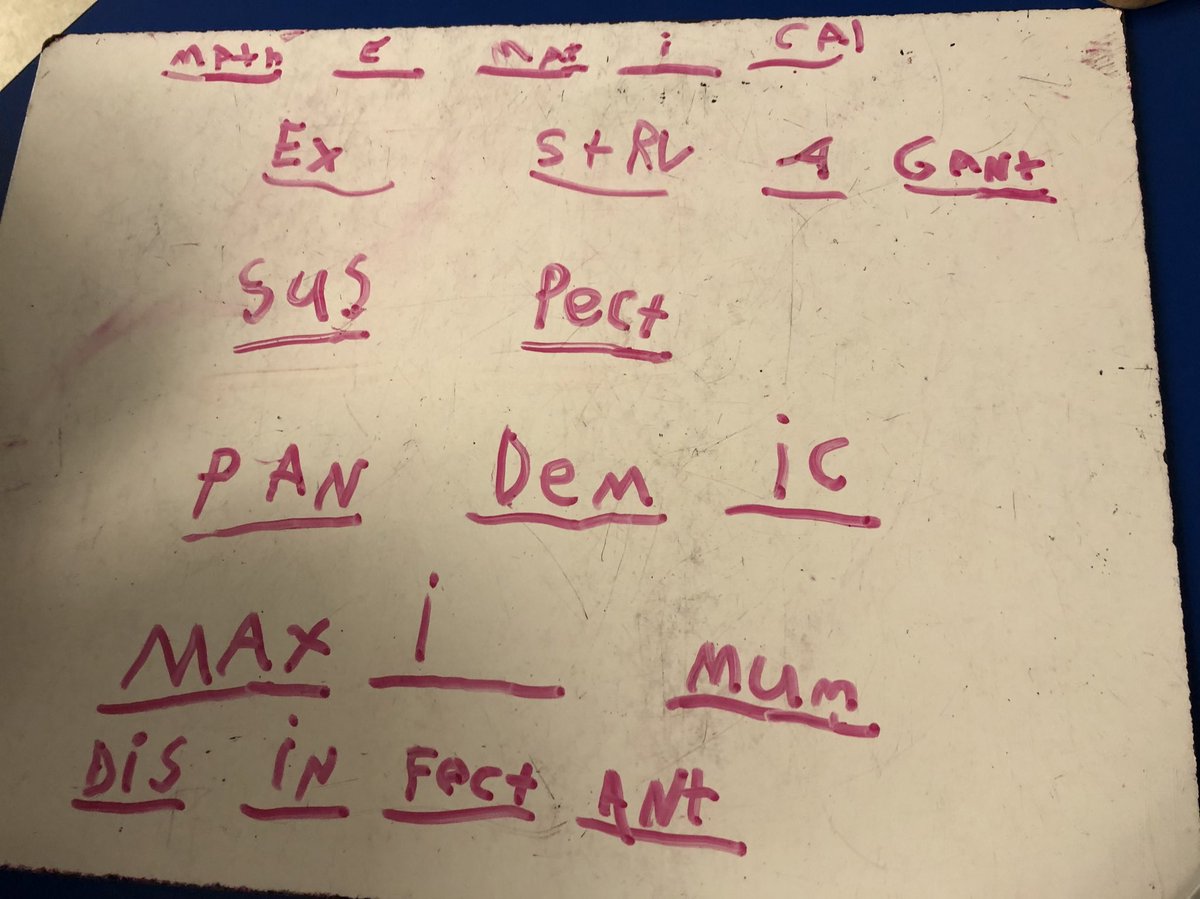 Math e Mat i CAl
Ex stRV A GANt
sus Pect
PAN Dem ic
MAx i Mum
Dis iN Fect ANt